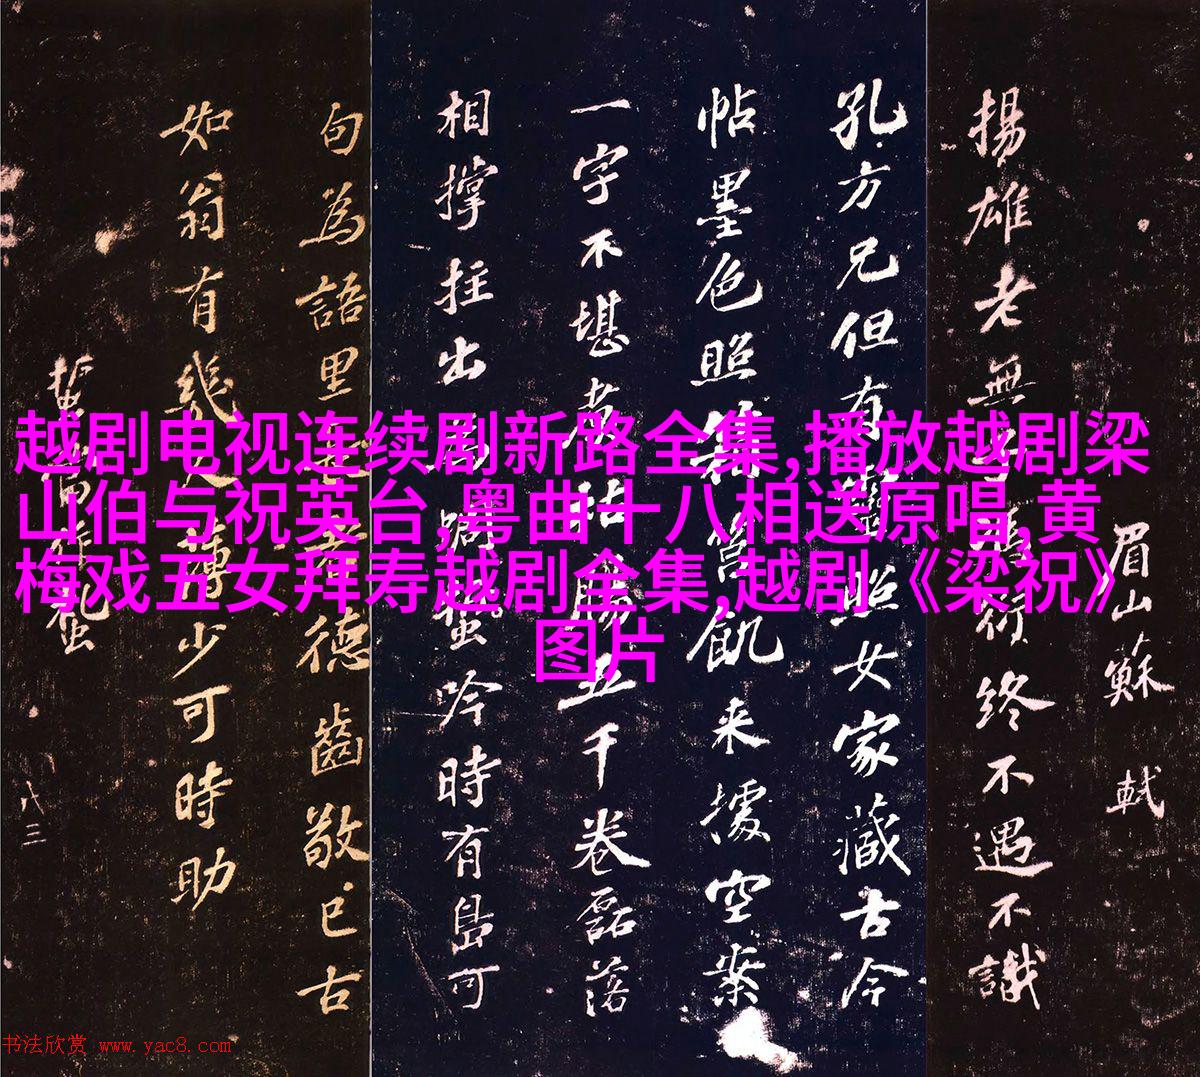 越剧电视连续剧新路全集,播放越剧梁
山伯与祝英台,粤曲十八相送原唱,黄
梅戏五女拜寿越剧全集,越剧《梁祝》
图片
眉山蘇軾
揚雄老無衍終不遇不識
孔方兄但有照女家藏古今
帖墨色照筥飢来據空案
一字不堪煮枯腸五千卷磊落
相撐拄出為蜩蛩吟時有島可
句為語里長者德齒敬已古
如翁有幾人薄少可時助
八三
书法欣赏 www.yac8.com